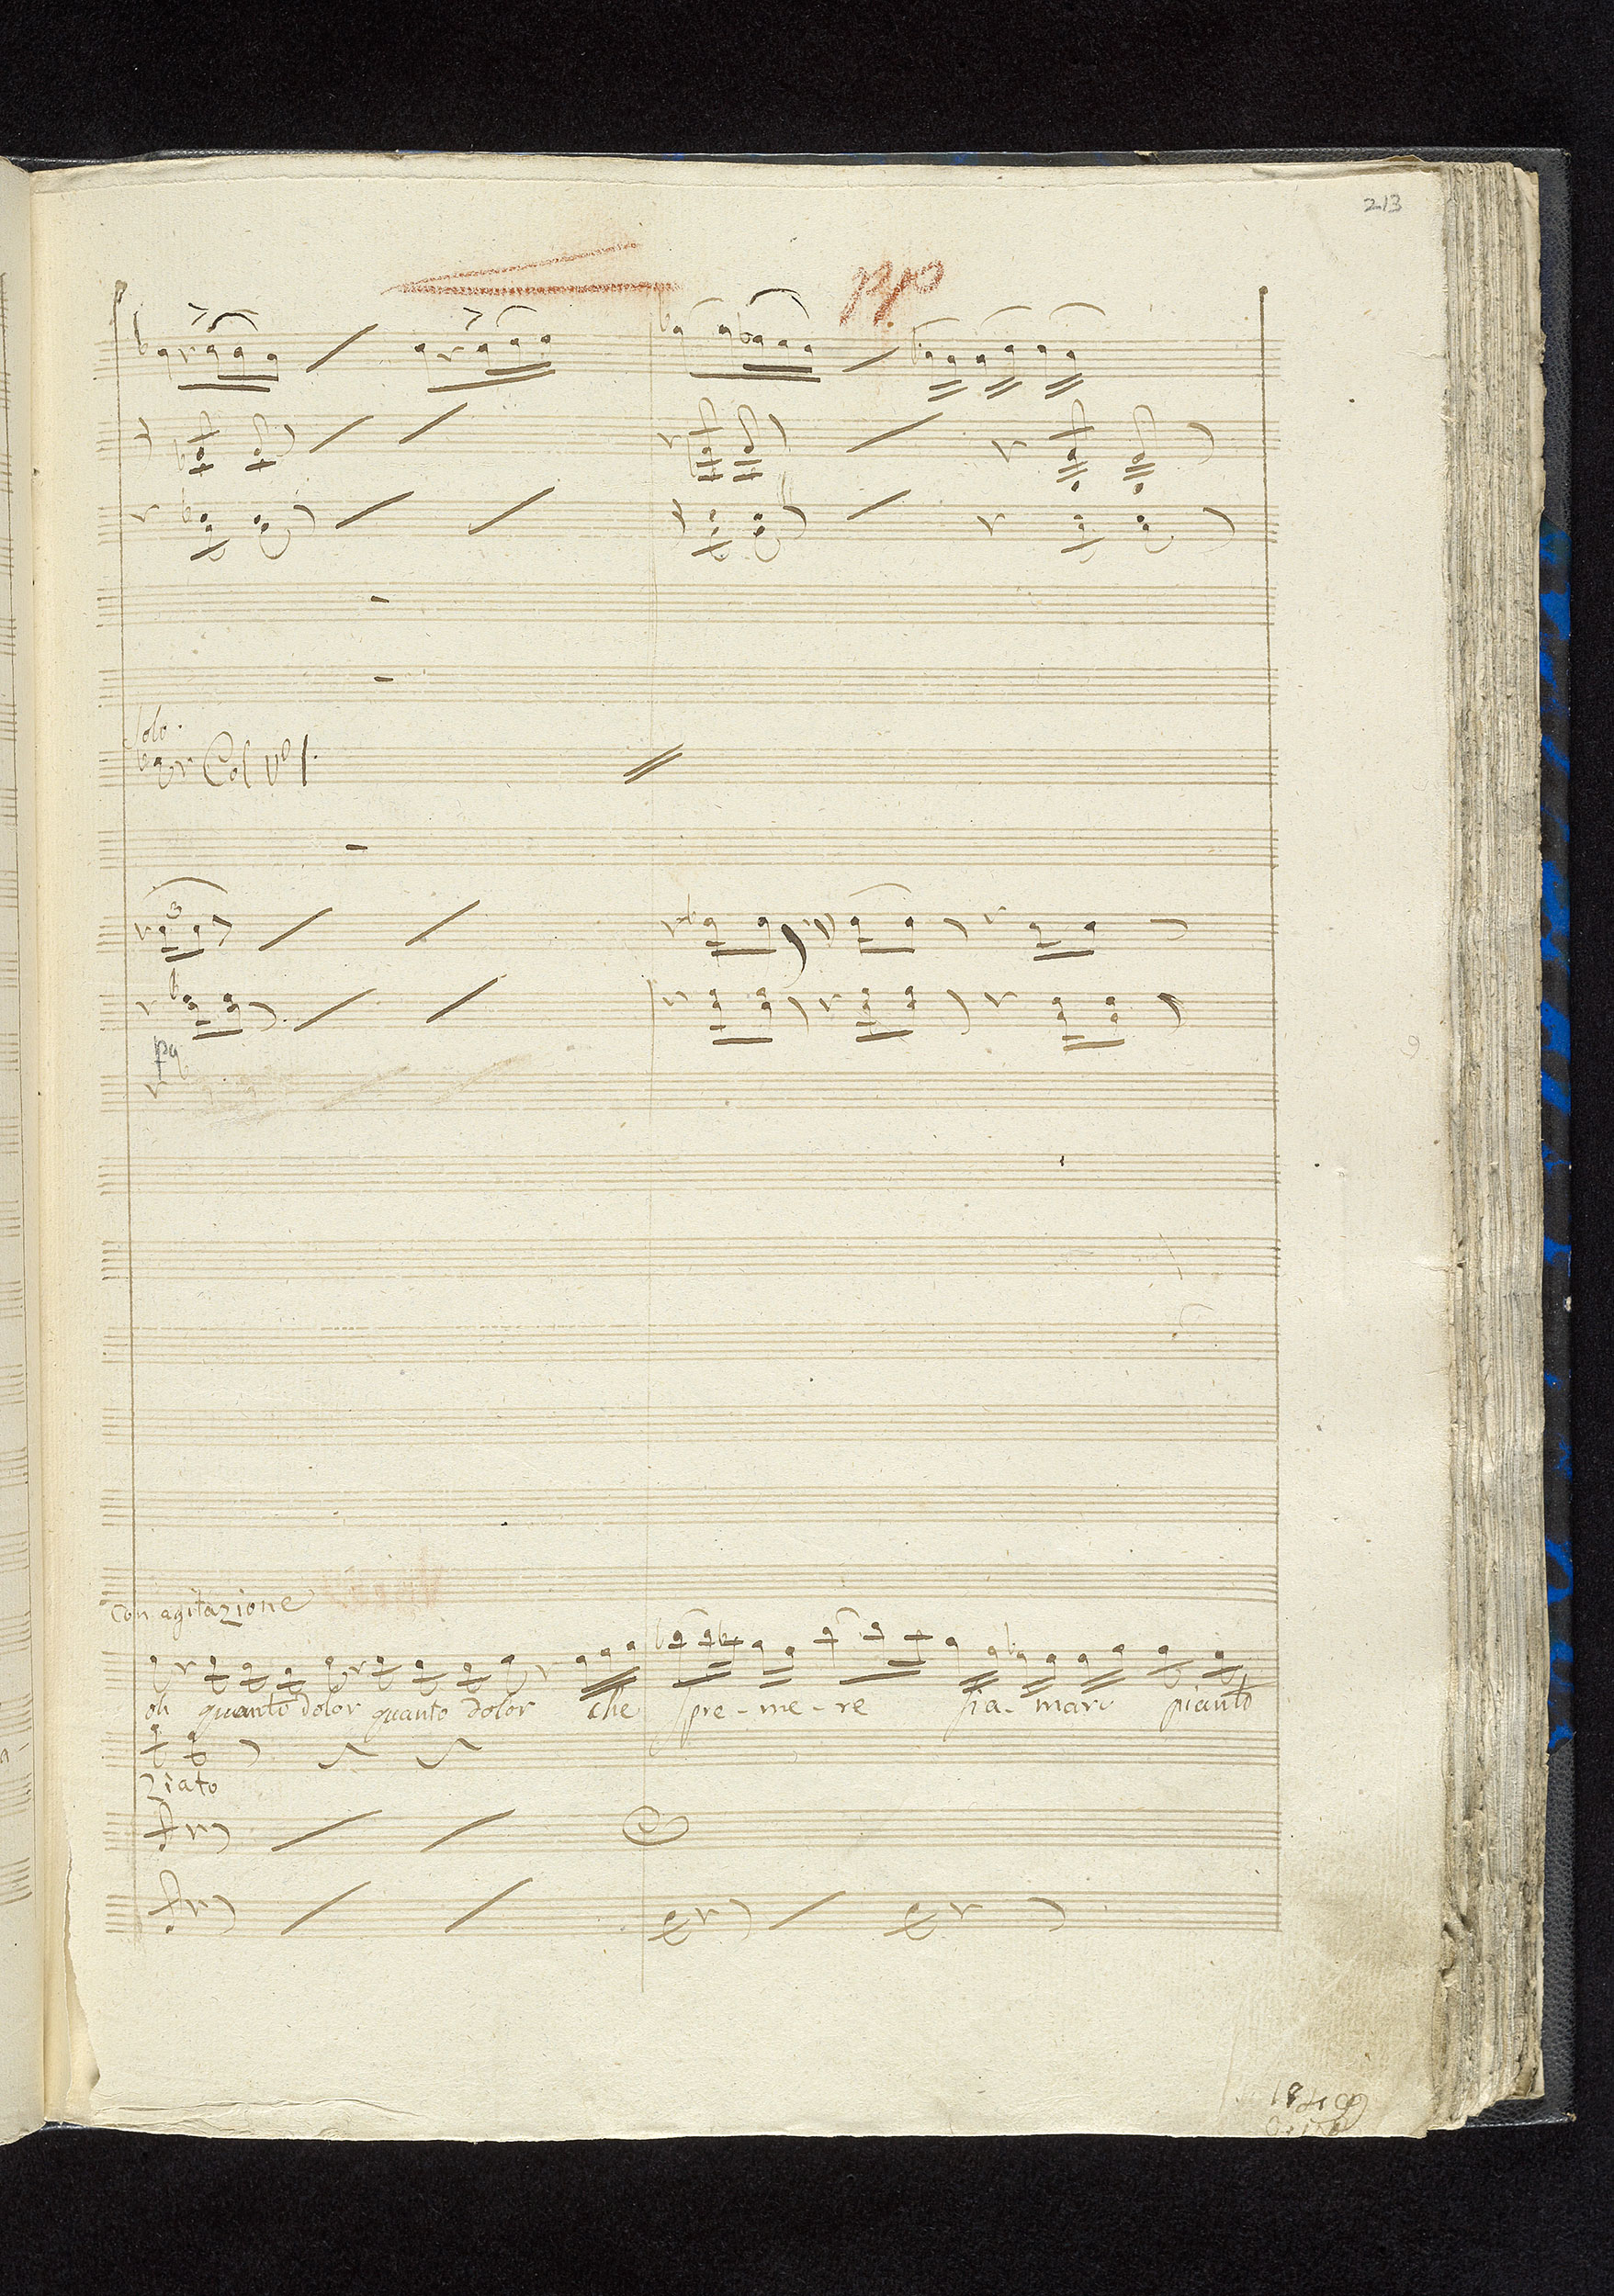 213
pp
Solo.
Col Vº 1.
3
Con agitazione
oh quanto dolor quanto dolor che spre - me - re fia - maro pianto
ziato